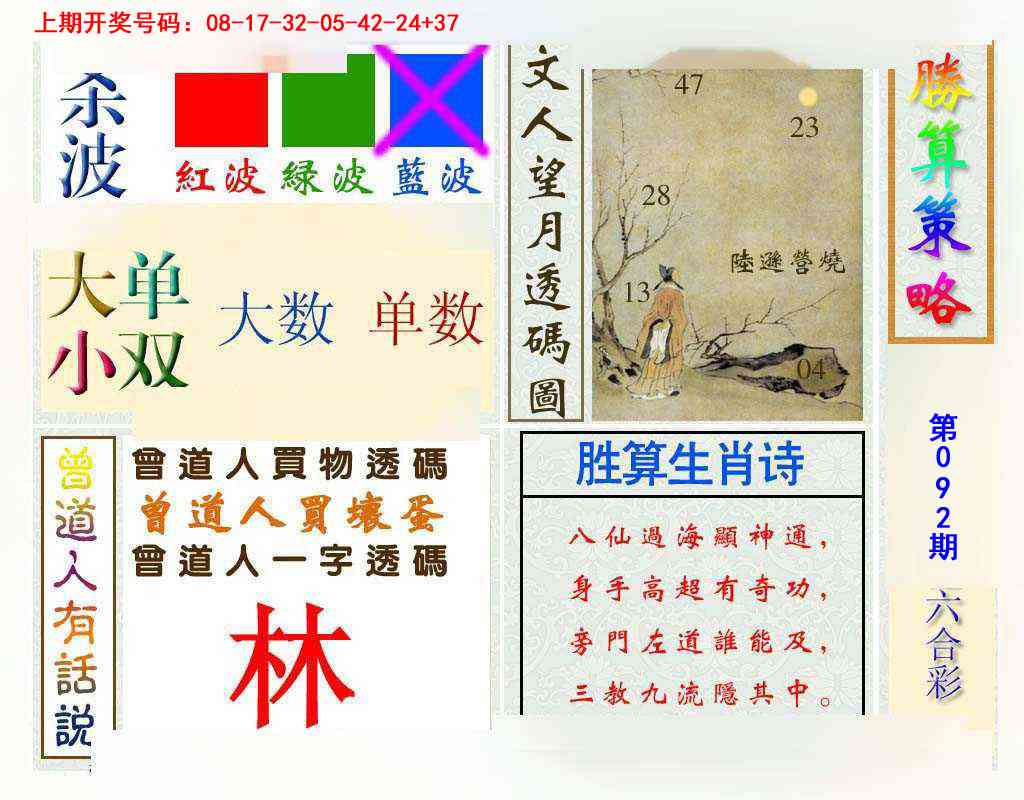 上期开奖号码：08-17-32-05-42-24+37
杀波
紅波
緑波
藍波
大单
小双
大数
单数
文人望月透碼圖
47
23
28
陸遜營燒
13
04
勝算策略
第092期
六合彩
曾道人有話説
曾道人買物透碼
曾道人買壞蛋
曾道人一字透碼
林
胜算生肖诗
八仙過海顯神通，
身手高超有奇功，
旁門左道誰能及，
三教九流隱其中。